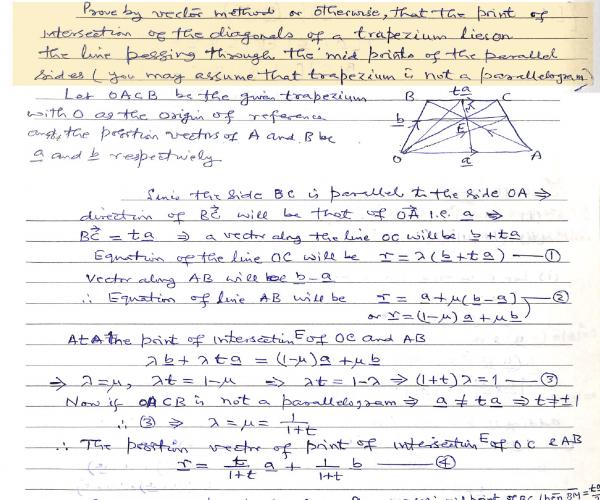 Prove by vector method or otherwise, that the point of
intersection of the diagonals of a trapezium lies on
the line passing through the mid points of the parallel
sides (you may assume that trapezium is not a parallelogram)
Let OACB be the given trapezium
with O as the origin of reference
and, the position vectors of A and B be
a and b respectively
B ta C
b E
O a A
Since the side BC is parallel to the side OA ⇒
direction of BC→ will be that of OA→ i.e. a ⇒
BC→ = ta ⇒ a vector along the line OC will be b + ta
Equation of the line OC will be r = λ(b + ta) — ①
Vector along AB will be b − a
∴ Equation of line AB will be r = a + μ(b − a) — ②
or r = (1−μ)a + μb
At the point of intersection E of OC and AB
λb + λta = (1−μ)a + μb
⇒ λ = μ, λt = 1−μ ⇒ λt = 1−λ ⇒ (1+t)λ = 1 — ③
Now if OACB is not a parallelogram ⇒ a ≠ ta ⇒ t ≠ ±1
∴ ③ ⇒ λ = μ = 1/(1+t)
∴ The position vector of point of intersection E of OC & AB
r = t/(1+t) a + 1/(1+t) b — ④